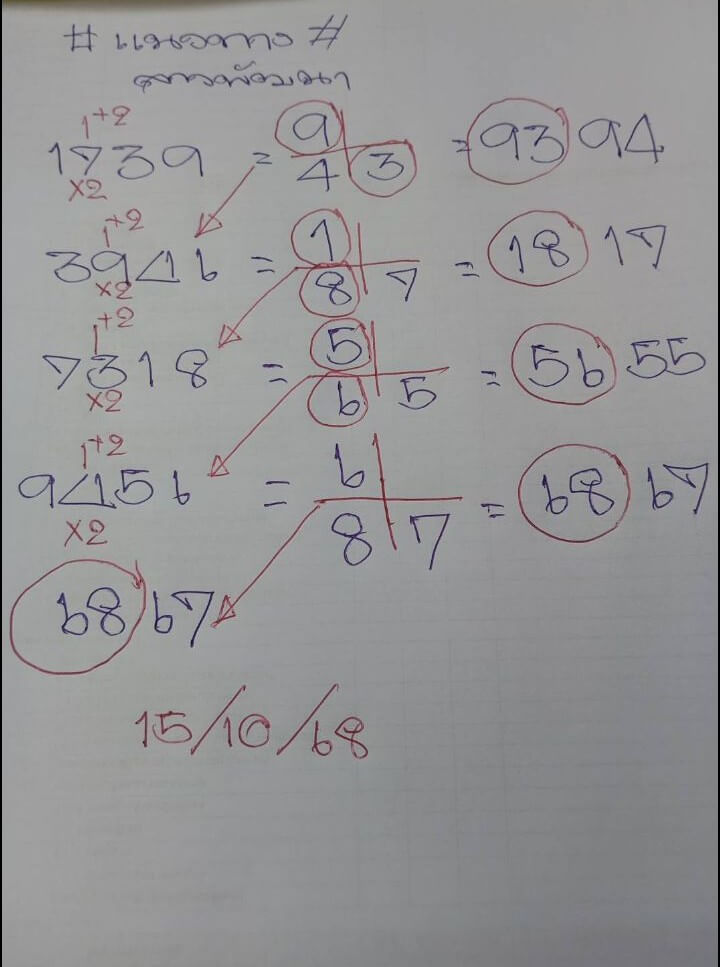 # แนวทาง #
ลาวพัฒนา
1+2
1739 = 9 4 3 = 93 94
×2
1+2
3946 = 1 8 7 = 18 17
×2
1+2
7318 = 5 6 5 = 56 55
×2
1+2
9456 = 6 8 7 = 68 67
×2
68 67
15/10/68